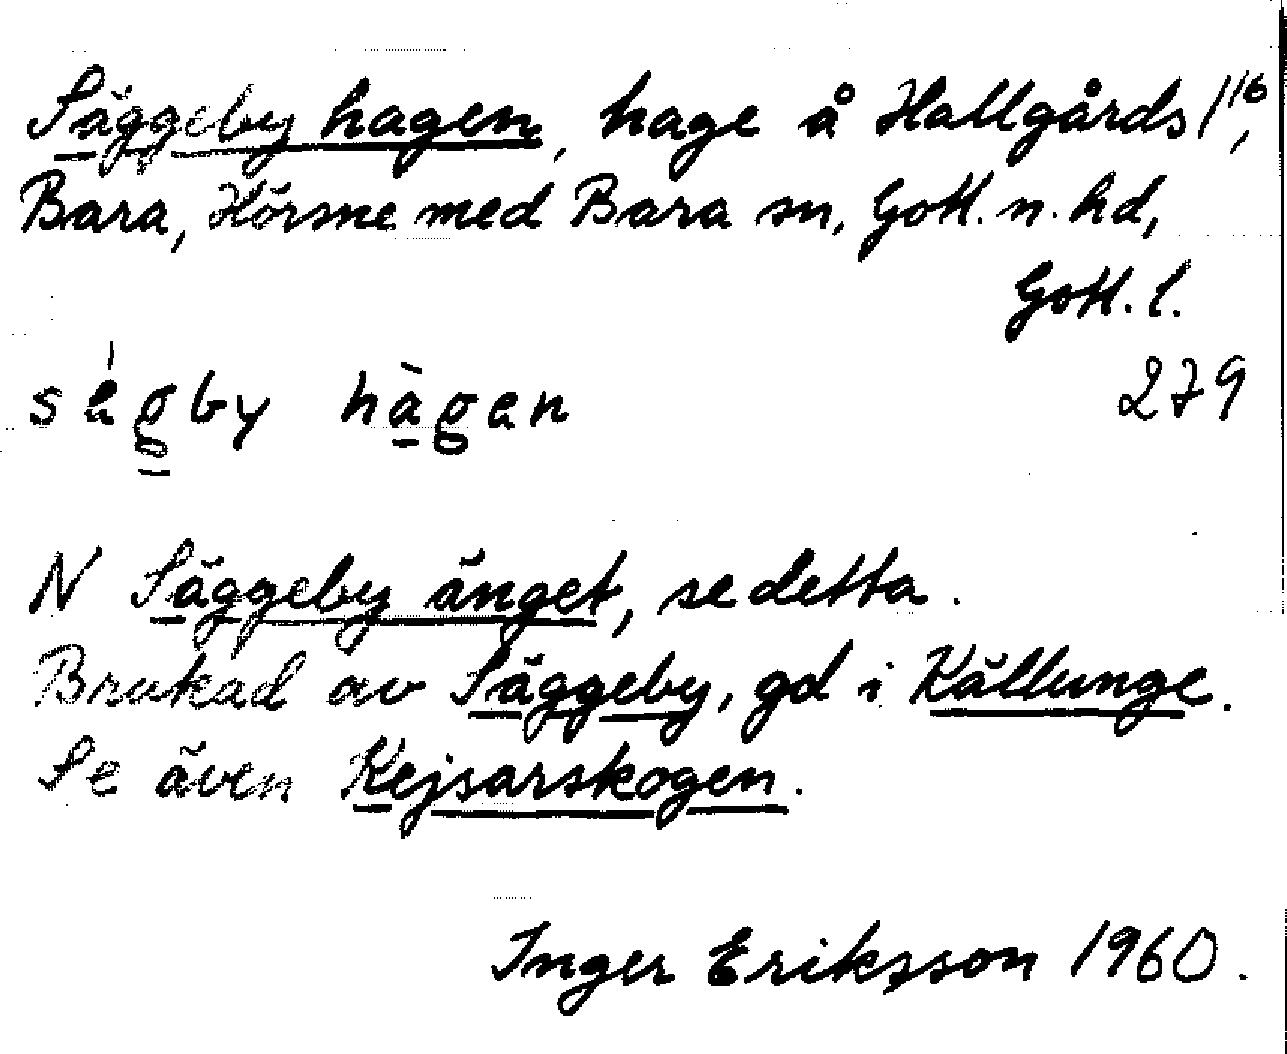 Säggeby hagen, hage å Hallgårds 1/16,
Bara, Hörsne med Bara sn, Gotl. n. hd,
Gotl. l.
279
ségby hàgen
N Säggeby änget, se detta.
Brukad av Säggeby, gd i Källunge.
Se även Kejsarskogen.
Inger Eriksson 1960.